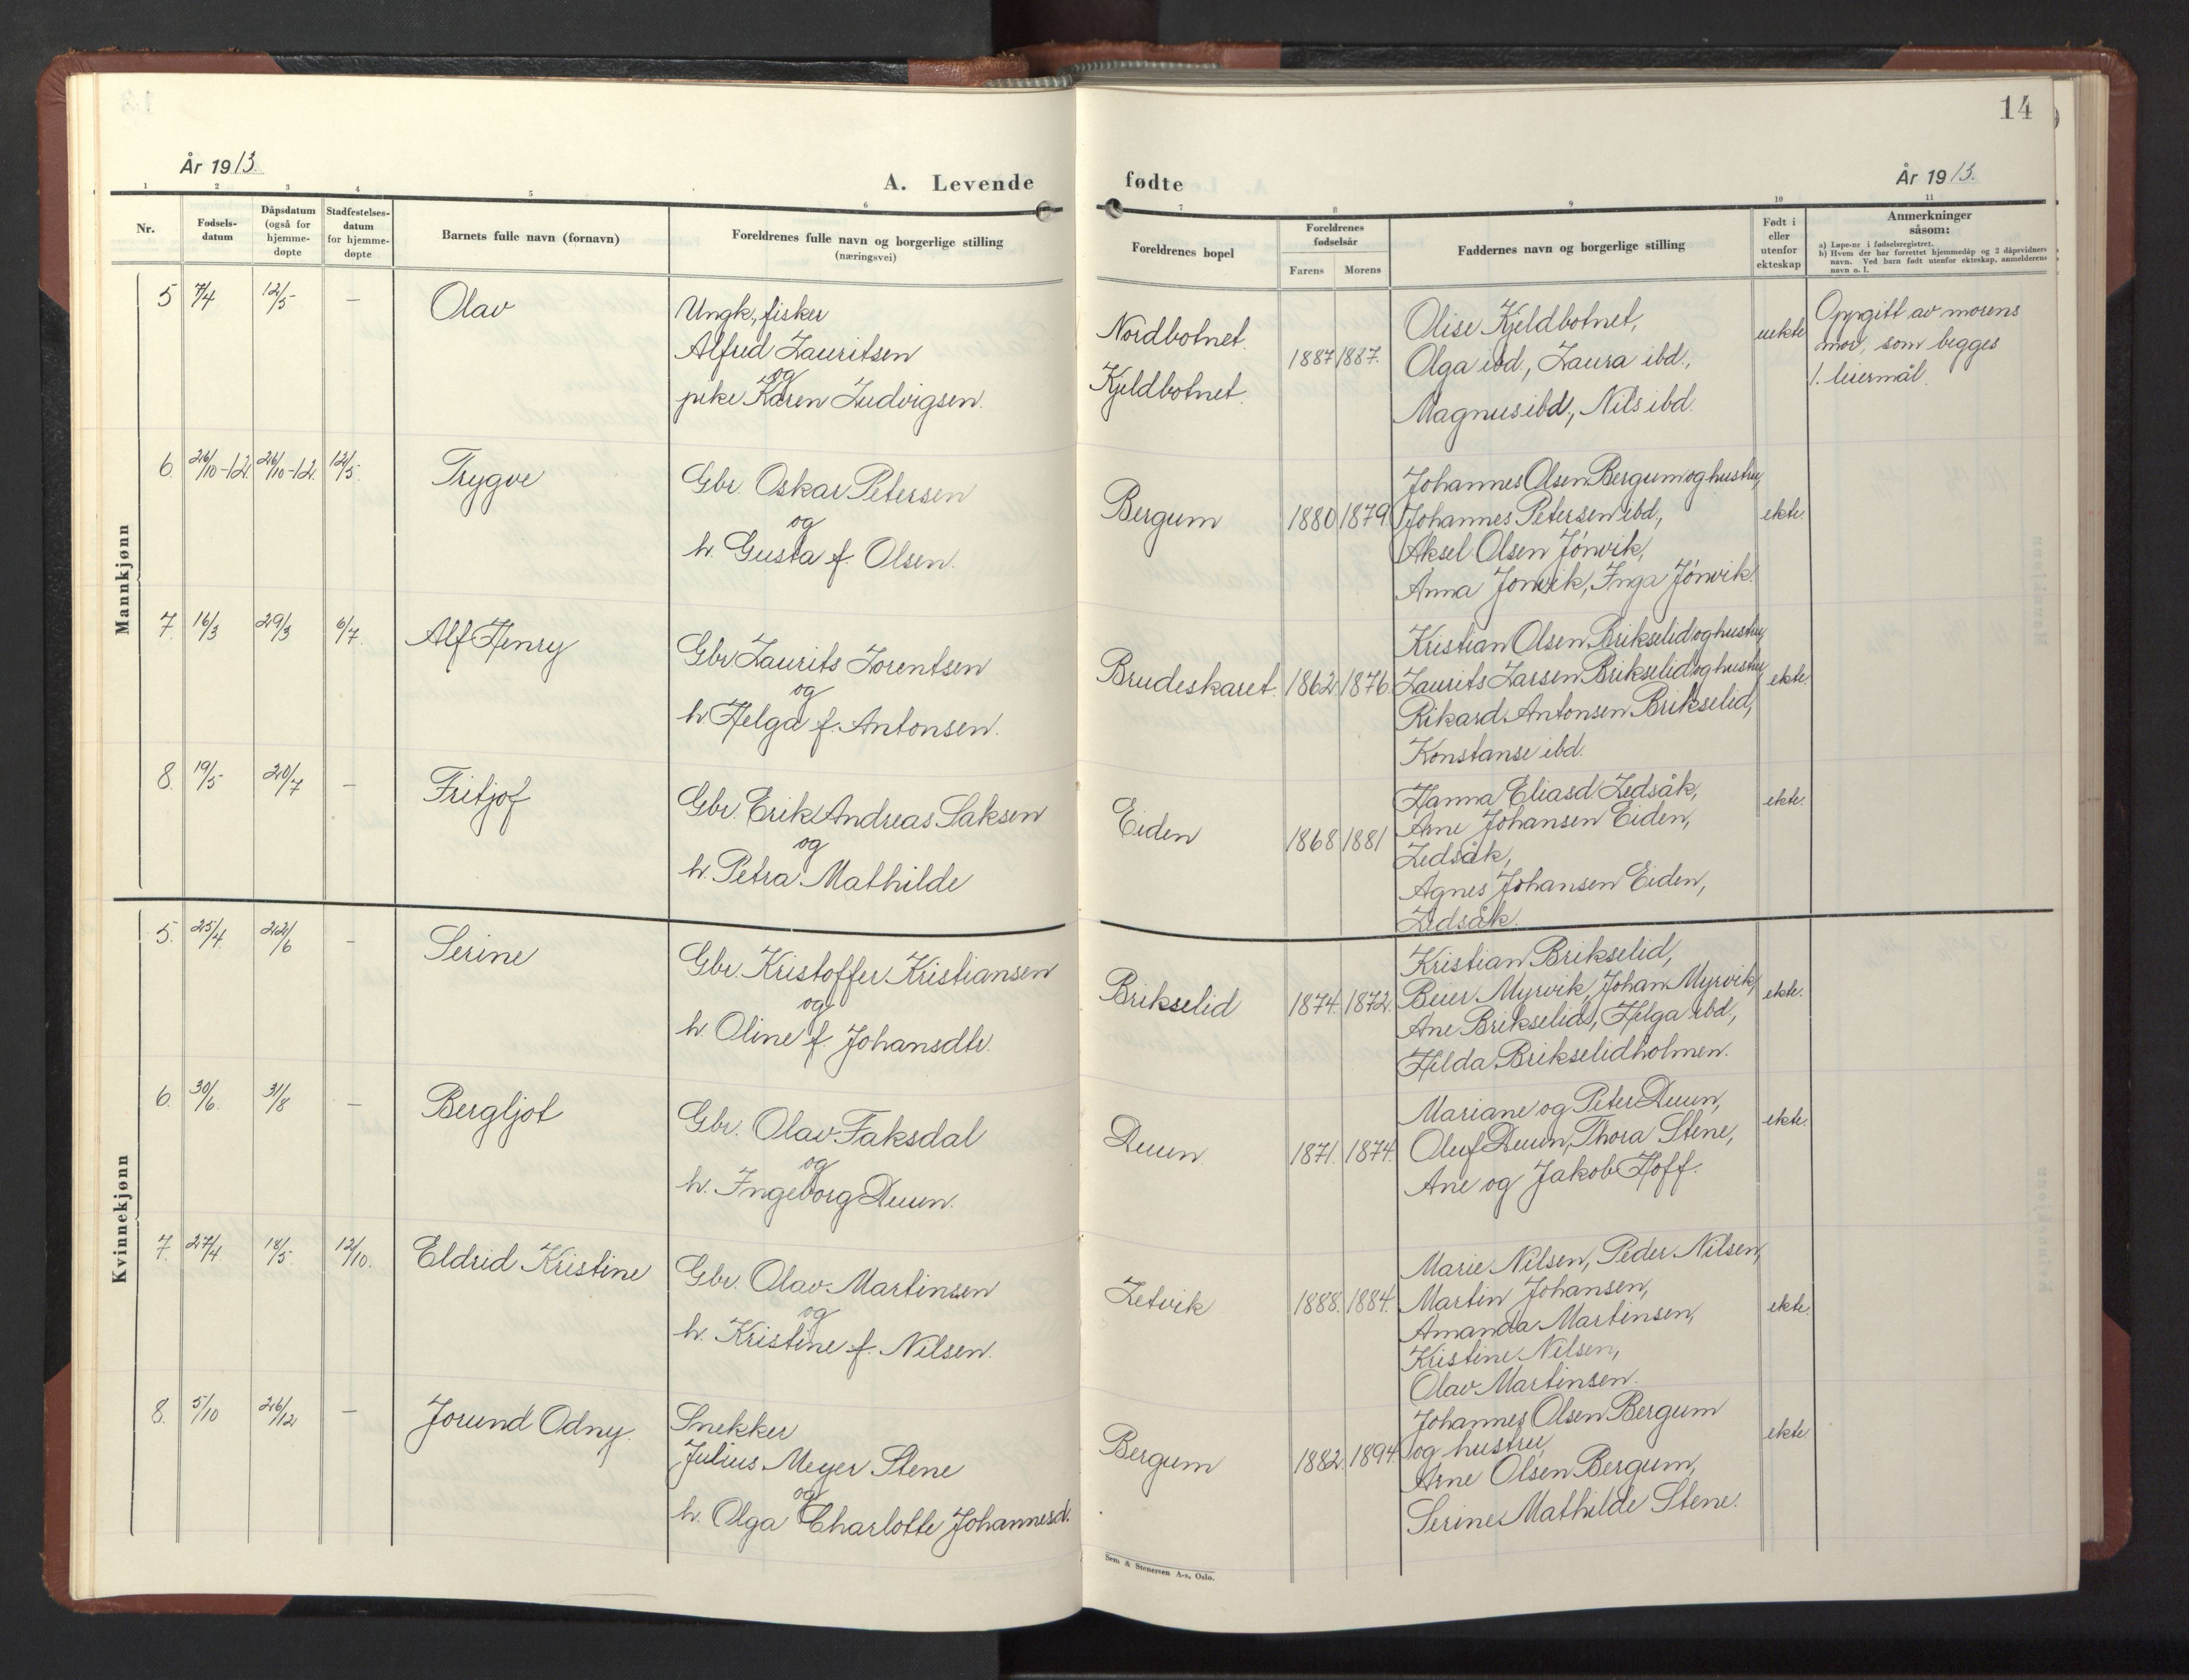 14
År 1913.
A. Levende fødte
År 1913.
1 2 3 4 5 6 7 8 9 10 11
Nr.
Fødsels-
datum
Dåpsdatum
(også for
hjemme-
døpte
Stadfestelses-
datum
for hjemme-
døpte
Barnets fulle navn (fornavn)
Foreldrenes fulle navn og borgerlige stilling
(næringsvei)
Foreldrenes bopel
Foreldrenes
fødselsår
Farens Morens
Faddernes navn og borgerlige stilling
Født i
eller
utenfor
ekteskap
Anmerkninger
såsom:
a) Løpe-nr i fødselsregistret.
b) Hvem der har forrettet hjemmedåp og 2 dåpsvidners
navn. Ved barn født utenfor ekteskap, anmelderens
navn o. l.
Mannkjønn
5 7/4 12/5 — Olav
Ungk., fisker
Alfred Lauritsen
og
pike Karen Ludvigsen.
Nordbotnet.
Kjeldbotnet.
1887 1887.
Olise Kjeldbotnet,
Olga ibd., Laura ibd.,
Magnus ibd., Nils ibd.
uekte
Oppgitt av morens
mor, som begges
1. leiermål.
6. 26/10-12. 26/10-12. 12/5. Trygve
Gbr. Oskar Petersen
og
h. Gusta f. Olsen.
Bergum
1880 1879.
Johannes Olsen Bergum og hustru,
Johannes Petersen ibd.,
Aksel Olsen Jónvik,
Anna Jonvik, Inga Jónvik.
ekte.
7. 16/3 29/3 6/7. Alf Henry
Gbr Laurits Lorentsen
og
h Helga f. Antonsen.
Brudeskaret.
1862 1876.
Kristian Olsen Brikselid og hustru,
Laurits Larsen Brikselid og hustru
Rikard Antonsen Brikselid,
Konstanse ibd.
ekte.
8. 19/5 20/7 — Fritjof
Gbr. Erik Andreas Saksen
og
h. Petra Mathilde
Eiden
1868 1881
Hanna Eliasd. Ledsåk,
Arne Johansen Eiden,
Ledsåk,
Agnes Johansen Eiden,
Ledsåk.
ekte.
Kvinnekjønn
5. 25/4 22/6 — Serine
Gbr. Kristoffer Kristiansen
og
h. Oline f. Johansdtr.
Brikselid
1874. 1872.
Kristian Brikselid,
Beier Myrvik, Johan Myrvik,
Ane Brikselid, Helga ibd.,
Hilda Brikselidholmen.
ekte.
6. 30/6. 31/8 — Bergljot
Gbr. Olav Faksdal
og
h. Ingeborg Duun.
Duun
1871. 1874.
Mariane og Peter Duun,
Oluf Duun, Thora Stene,
Ane og Jakob Hoff.
ekte.
7. 27/4 18/5. 12/10. Eldrid Kristine
Gbr. Olav Martinsen
og
h. Kristine f. Nilsen.
Letvik
1888. 1884.
Marie Nilsen, Peder Nilsen,
Martin Johansen,
Amanda Martinsen,
Kristine Nilsen,
Olav Martinsen.
ekte.
8. 5/10 26/12 — Jorund Odny.
Snekker
Julius Meyer Stene
og
h. Olga Charlotte Johannesd.
Bergum
1882. 1894.
Johannes Olsen Bergum
og hustru,
Arne Olsen Bergum,
Serine Mathilde Stene.
ekte.
Sem & Stenersen A-s, Oslo.